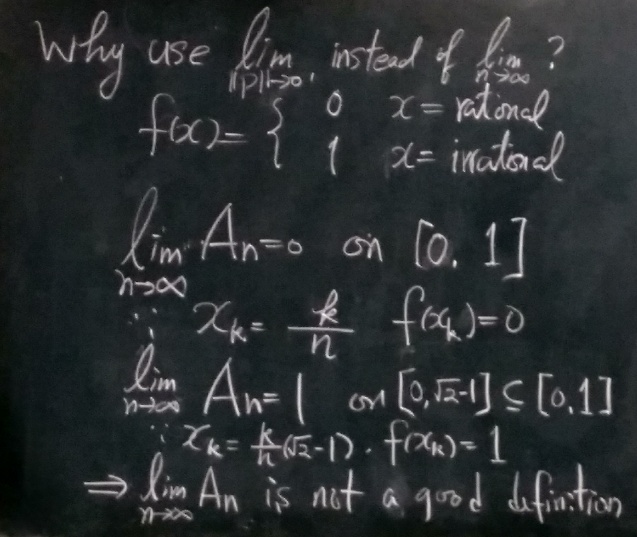 Why use lim ||P||→0, instead of lim n→∞ ?
f(x)= { 0 x= rational
1 x= irrational
lim n→∞ An=0 on [0, 1]
∵ xk= k/n f(xk)=0
lim n→∞ An=1 on [0,√2-1] ⊆ [0,1]
∵ xk= k/n (√2-1). f(xk)=1
⇒ lim n→∞ An is not a good definition